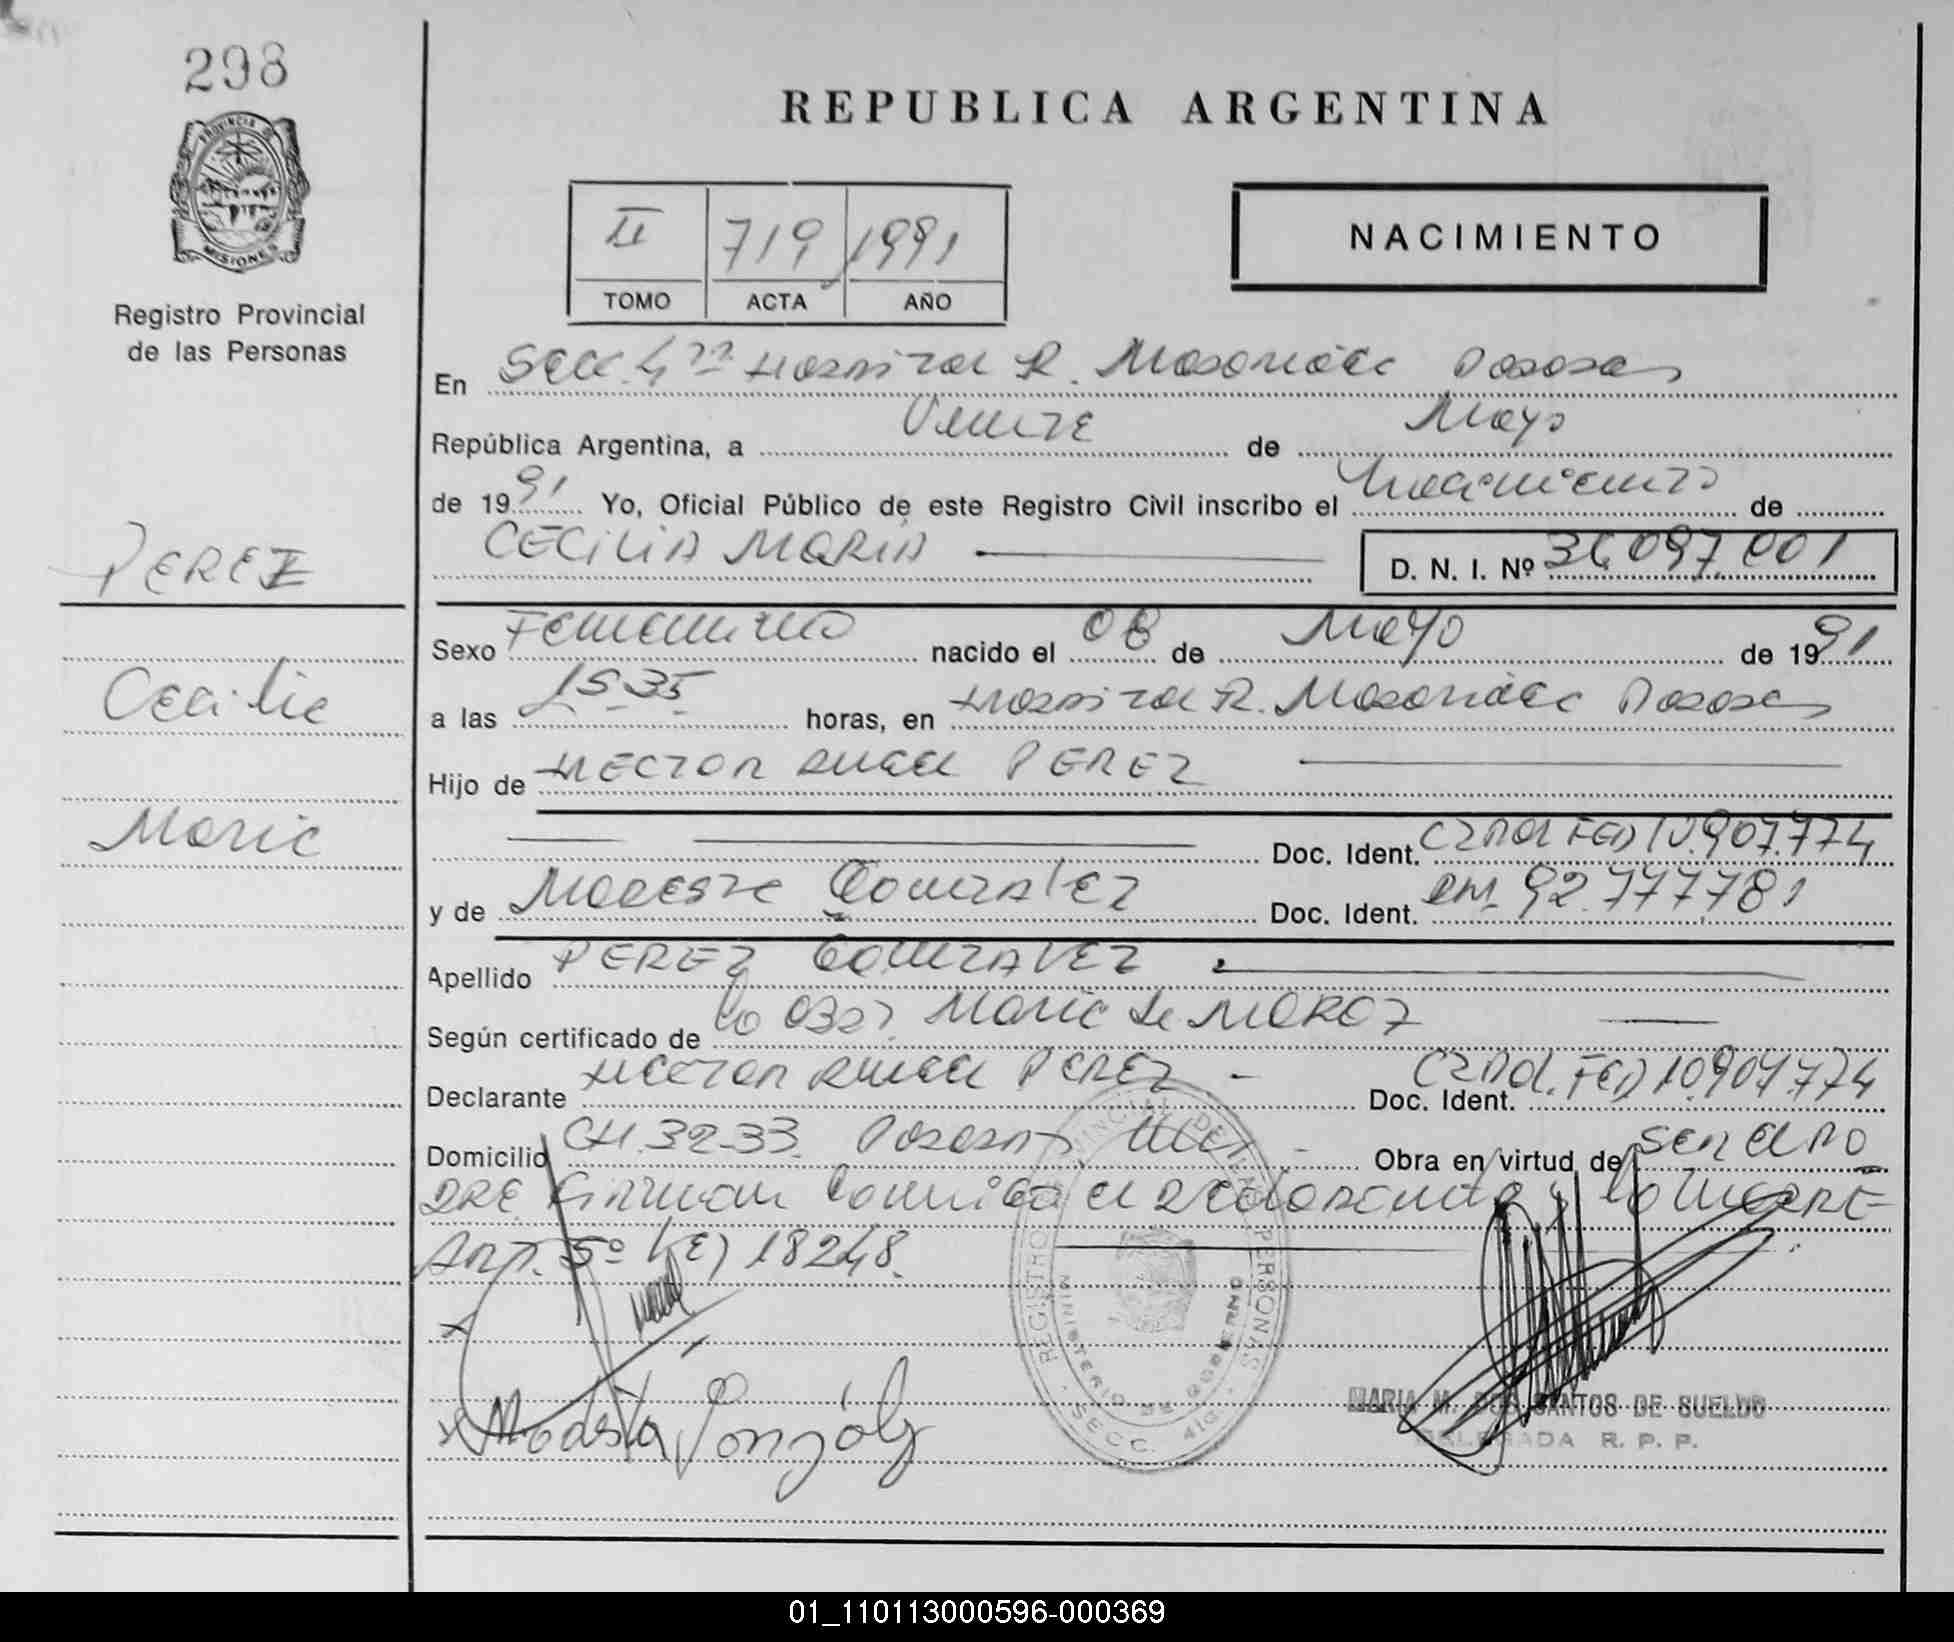 298
PROVINCIA DE
MISIONES
Registro Provincial
de las Personas
PEREZ
Cecilia
Maria
REPUBLICA ARGENTINA
II 719 1991
TOMO ACTA AÑO
NACIMIENTO
En Secc. 4ta Hospital R. Madariaga Posadas
República Argentina, a Veinte de Mayo
de 1991 Yo, Oficial Público de este Registro Civil inscribo el Nacimiento de
CECILIA MARIA D. N. I. Nº 36.097.001
Sexo Femenino nacido el 08 de Mayo de 1991
a las 15-35 horas, en Hospital R. Madariaga Posadas
Hijo de HECTOR Angel PEREZ
Doc. Ident. FED 10.907.774
y de Modesta Gonzalez Doc. Ident. 92.777781
Apellido PEREZ GONZALEZ
Según certificado de la Obst. Maria de
Declarante Hector Angel PEREZ - Doc. Ident. FED 10.907.774
Domicilio CH. 32-33. Posadas Obra en virtud de Ser el PA
DRE. Firman el declarante y la MADRE
Art. 5º Ley 18248.
Modesta González
REGISTRO PROVINCIAL DE LAS PERSONAS
MINISTERIO DE GOBIERNO
SECC. 4ta.
MARIA M. DOS SANTOS DE SUELDO
DELEGADA R. P. P.
01_110113000596-000369